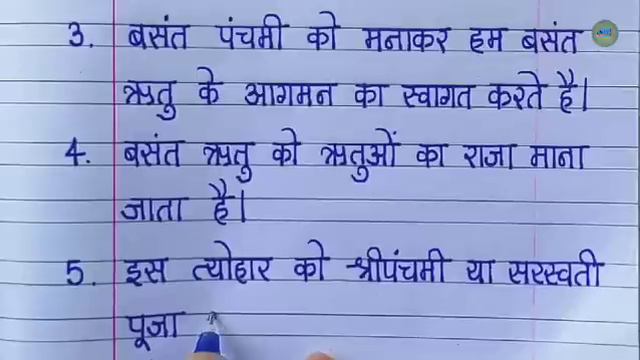 3. बसंत पंचमी को मनाकर हम बसंत
ऋतु के आगमन का स्वागत करते है।
4. बसंत ऋतु को ऋतुओं का राजा माना
जाता है।
5. इस त्योहार को श्रीपंचमी या सरस्वती
पूजा